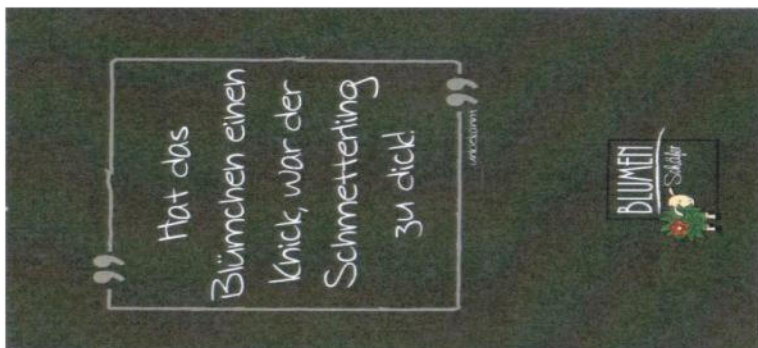 Hat das
Blümchen einen
Knick, war der
Schmetterling
zu dick!
unbekannt
BLUMEN
Schäfer